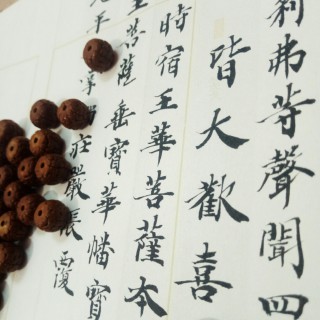 利弗等聲聞四
皆大歡喜
時宿王華菩薩本
菩薩垂寶華幡寶
平莊嚴帳覆